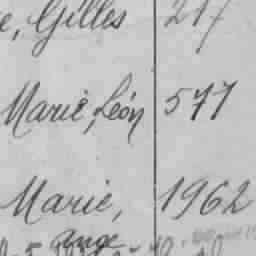 e, Gilles 217
Marie, Léon 577
Marie, 1962
ange